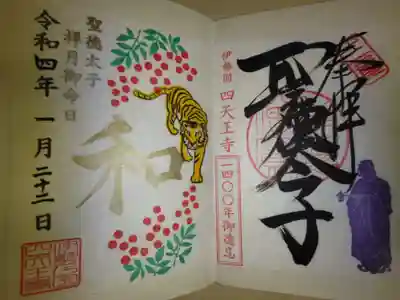 奉拝
聖徳太子
伊勢國 四天王寺
一四〇〇年御遠忌
和
聖徳太子
毎月御命日
令和四年 一月二十二日